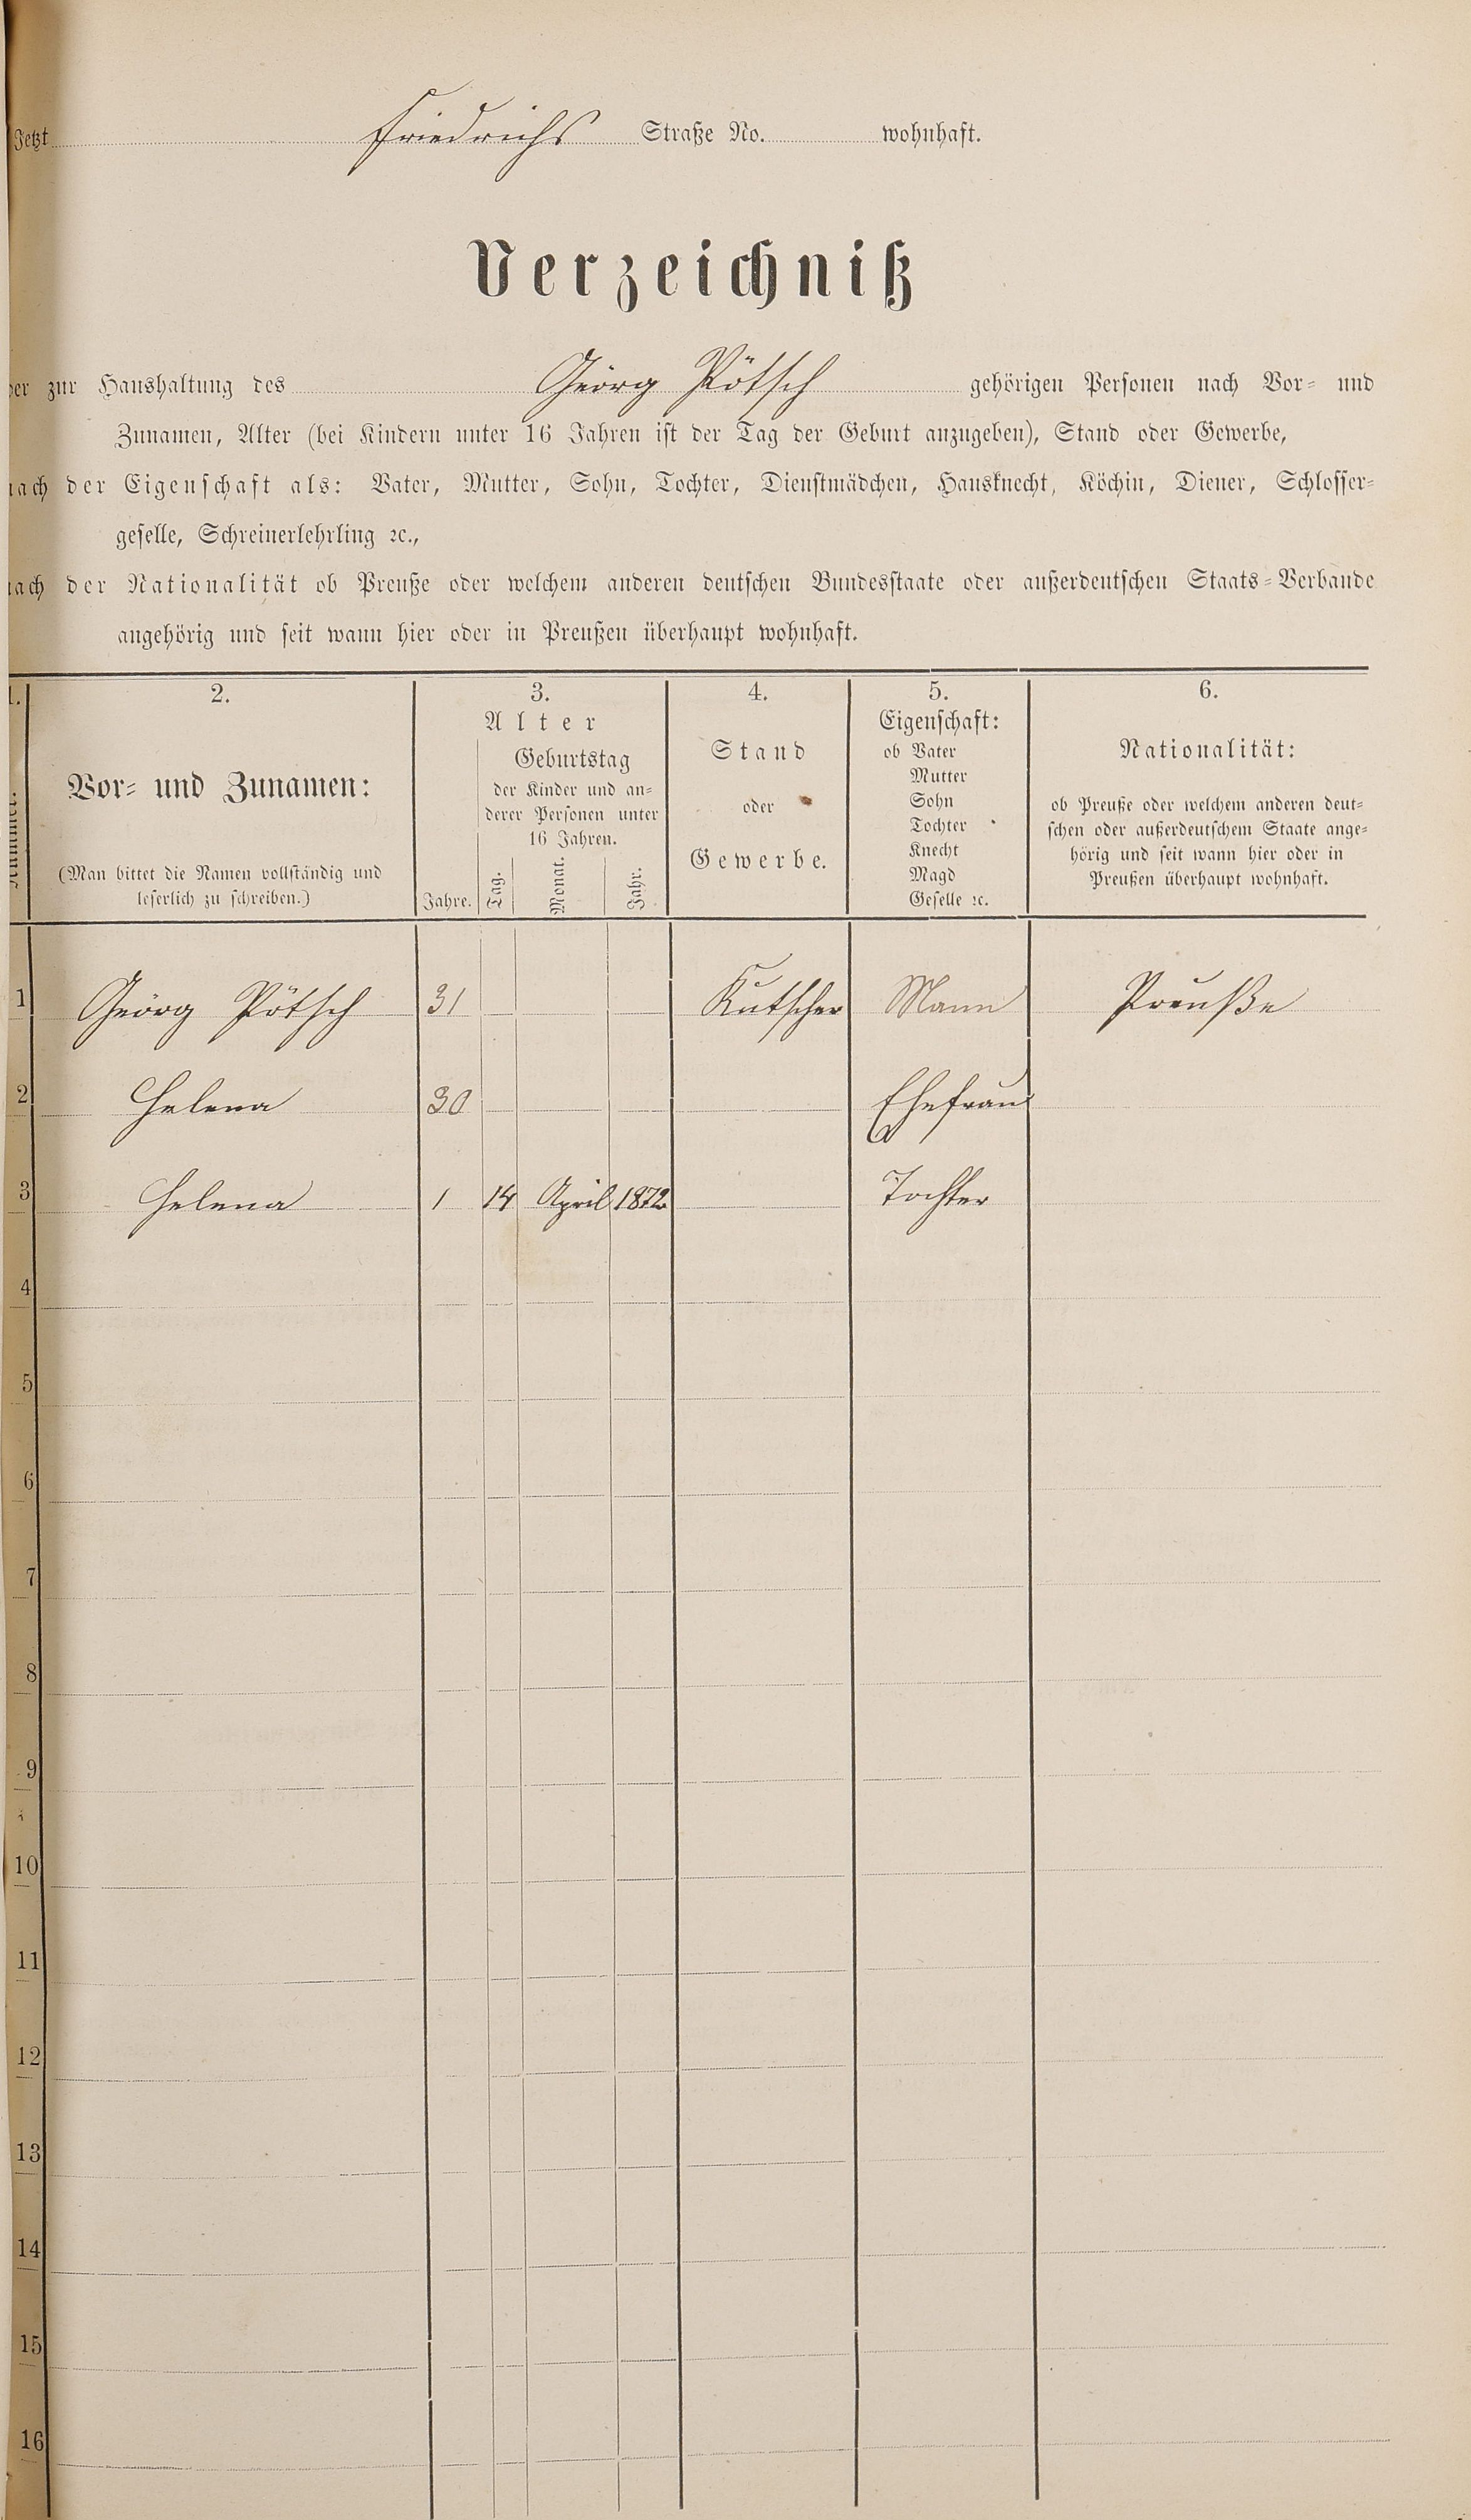 Jetzt Friedrichs Straße No. wohnhaft.
Verzeichniß
der zur Haushaltung des Geörg Pötsch gehörigen Personen nach Vor- und
Zunamen, Alter (bei Kindern unter 16 Jahren ist der Tag der Geburt anzugeben), Stand oder Gewerbe,
nach der Eigenschaft als: Vater, Mutter, Sohn, Tochter, Dienstmädchen, Hausknecht, Köchin, Diener, Schlosser-
geselle, Schreinerlehrling ꝛc.,
nach der Nationalität ob Preuße oder welchem anderen deutschen Bundesstaate oder außerdeutschen Staats-Verbande
angehörig und seit wann hier oder in Preußen überhaupt wohnhaft.
1.
Nummer.
2.
Vor- und Zunamen:
(Man bittet die Namen vollständig und
leserlich zu schreiben.)
3.
Alter
Jahre.
Geburtstag
der Kinder und an-
derer Personen unter
16 Jahren.
Tag.
Monat.
Jahr.
4.
Stand
oder
Gewerbe.
5.
Eigenschaft:
ob Vater
Mutter
Sohn
Tochter
Knecht
Magd
Geselle ꝛc.
6.
Nationalität:
ob Preuße oder welchem anderen deut-
schen oder außerdeutschem Staate ange-
hörig und seit wann hier oder in
Preußen überhaupt wohnhaft.
1 Geörg Pötsch 31 Kutscher Mann Preuße
2 Helena 30 Ehefrau
3 Helena 1 14 April 1872 Tochter
4
5
6
7
8
9
10
11
12
13
14
15
16